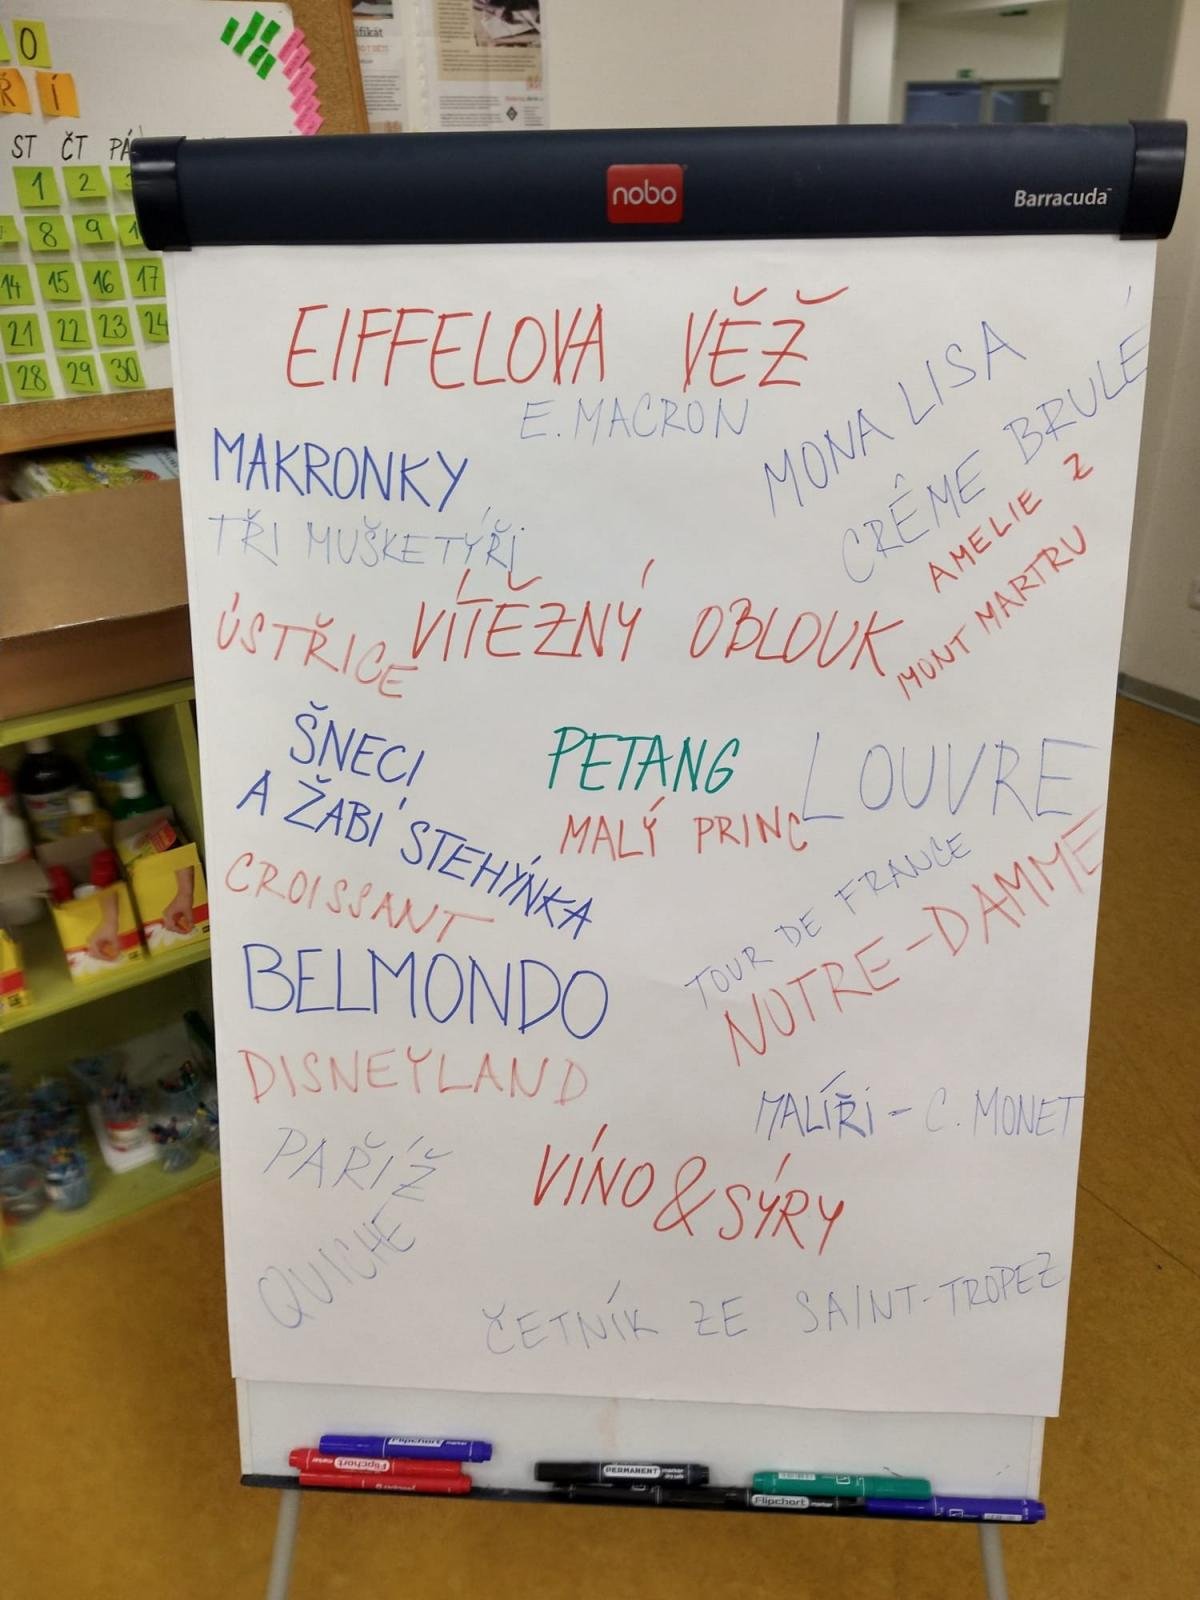 O
Ř Í
ST ČT PÁ
1 2
8 9
14 15 16 17
21 22 23 24
28 29 30
nobo
Barracuda
EIFFELOVA VĚŽ
E. MACRON
MONA LISA
MAKRONKY
CRÊME BRULÉ
TŘI MUŠKETÝŘI
AMELIE Z
MONT MARTRU
VÍTĚZNÝ OBLOUK
ÚSTŘICE
ŠNECI
A ŽABÍ STEHÝNKA
PETANG
LOUVRE
MALÝ PRINC
CROISSANT
TOUR DE FRANCE
BELMONDO
NOTRE-DAMME
DISNEYLAND
MALÍŘI - C. MONET
PAŘÍŽ
VÍNO & SÝRY
QUICHE
ČETNÍK ZE SAINT-TROPEZ
Flipchart marker
Flipchart
PERMANENT marker
Flipchart marker